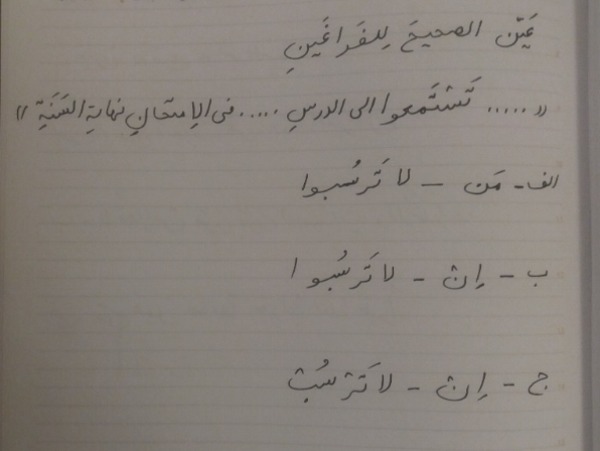 عَيِّن الصحيحَ لِلفَراغَينِ
« ..... تَستَمعوا الی الدرسِ ..... فی الاِمتحانِ نهايةِ السَّنَةِ »
الف - مَن - لا تَرسُبوا
ب - إن - لا تَرسُبوا
ج - إن - لا تَرسُبْ